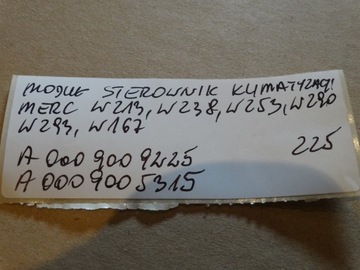 MODUŁ STEROWNIK KLIMATYZACJI
MERC W213, W238, W253, W290
W293, W167
A 000 900 9225 225
A 000 900 5315